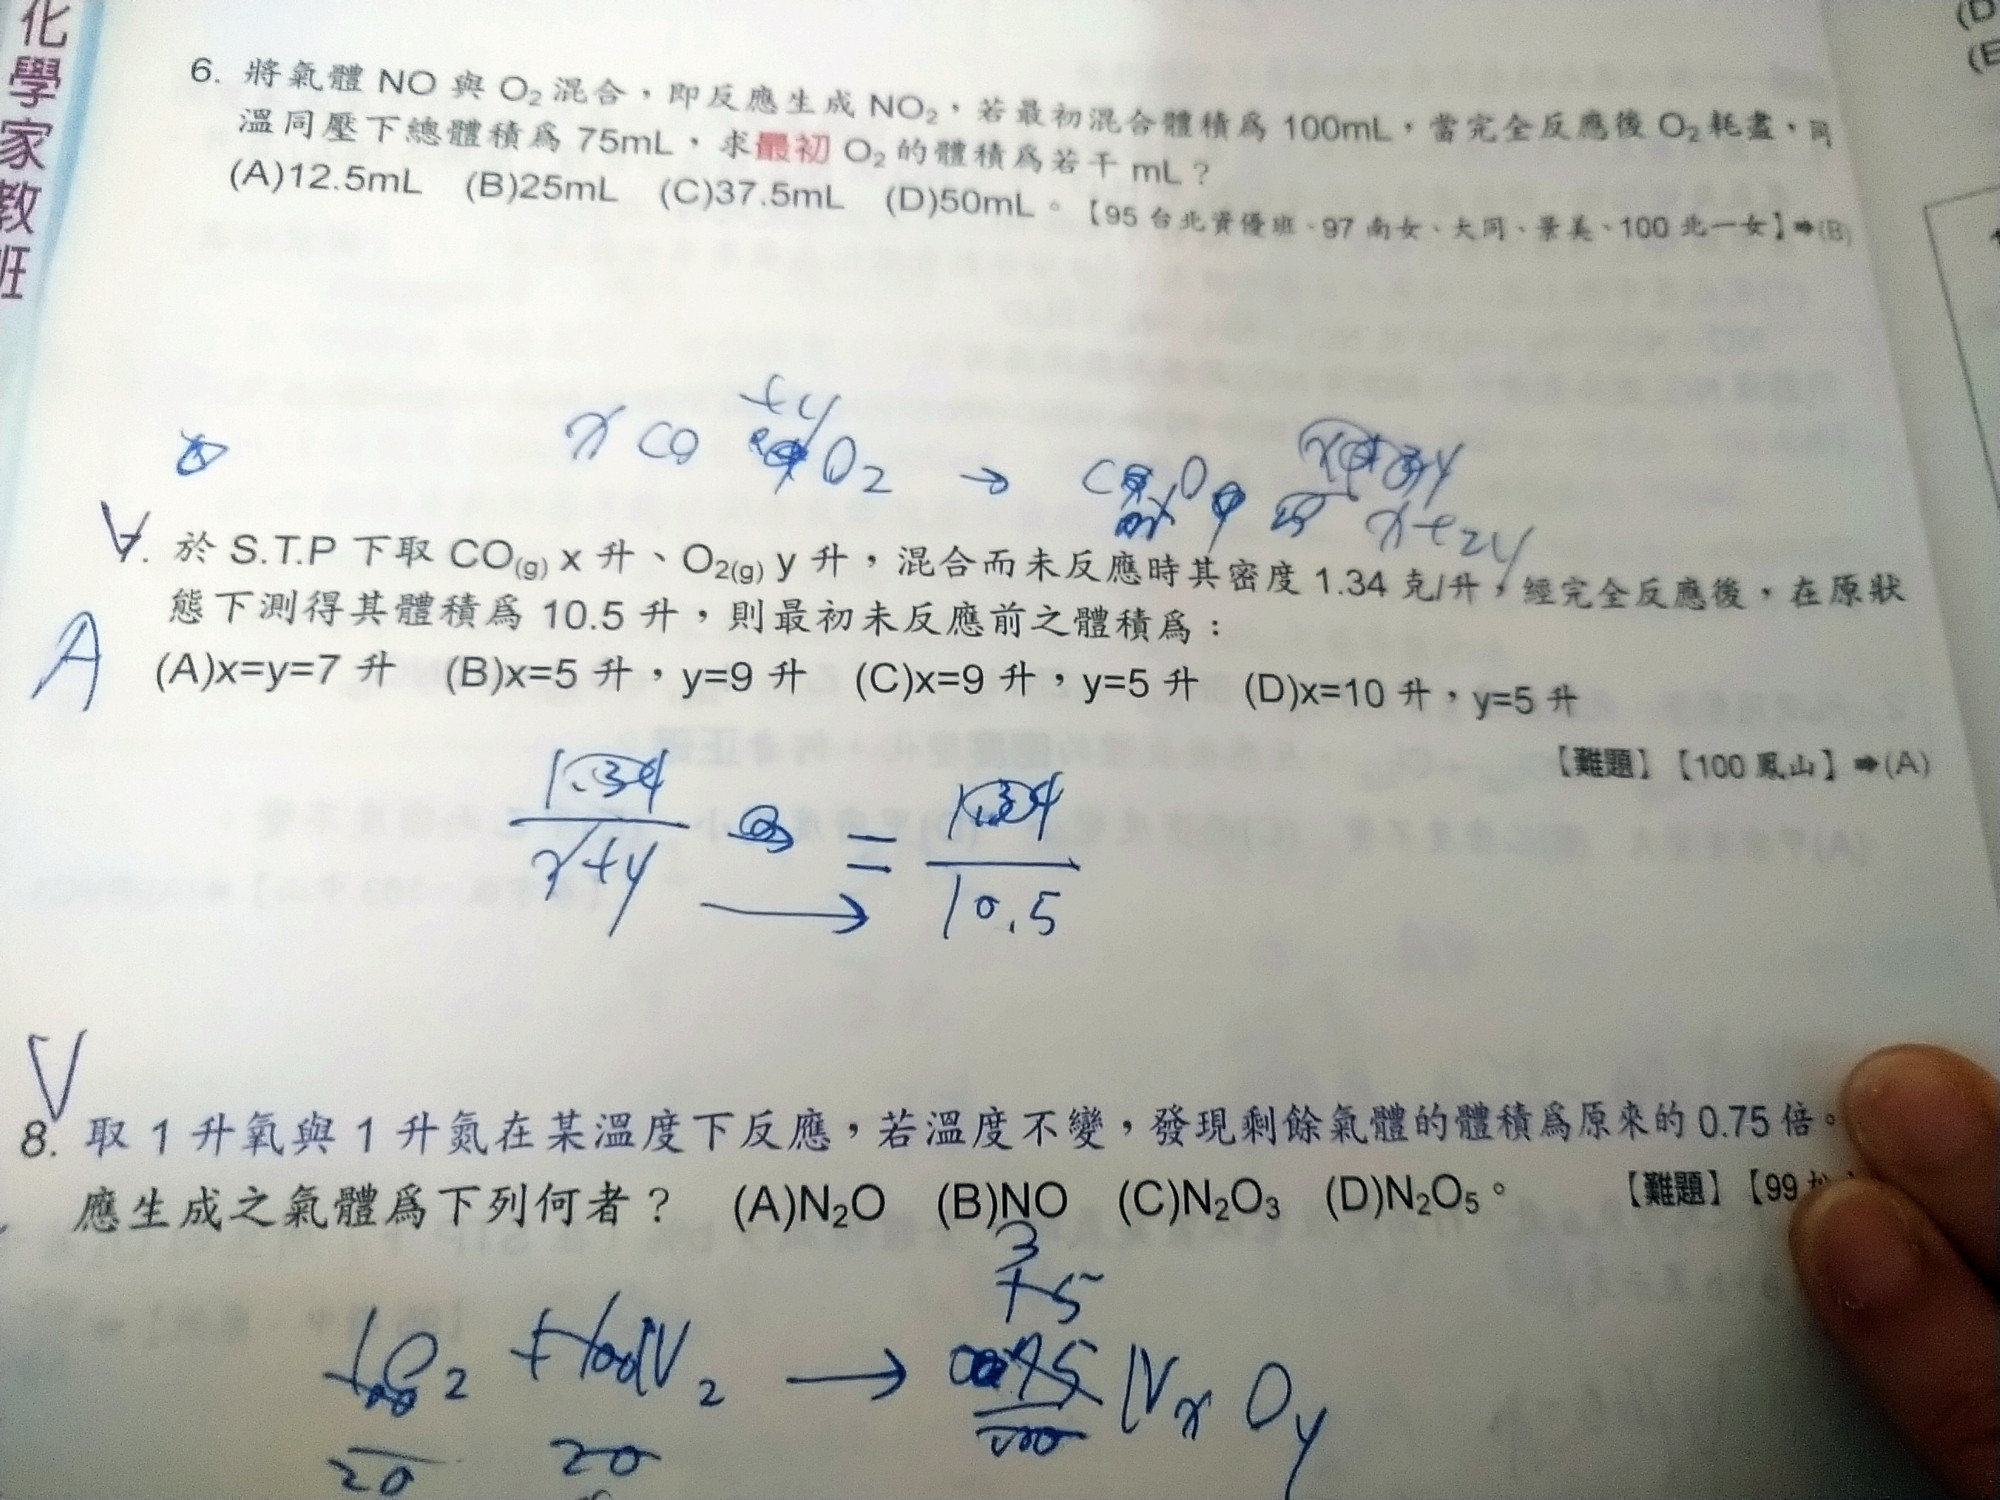 化學家教班
(D
(E
6. 將氣體 NO 與 O₂ 混合，即反應生成 NO₂，若最初混合體積爲 100mL，當完全反應後 O₂ 耗盡，同
溫同壓下總體積爲 75mL，求最初 O₂ 的體積爲若干 mL？
(A)12.5mL (B)25mL (C)37.5mL (D)50mL。【95 台北資優班、97 南女、大同、景美、100 北一女】➡(B)
x CO + y O₂ → C O
x+2y
於 S.T.P 下取 CO(g) x 升、O₂(g) y 升，混合而未反應時其密度 1.34 克/升，經完全反應後，在原狀
態下測得其體積爲 10.5 升，則最初未反應前之體積爲：
A
(A)x=y=7 升 (B)x=5 升，y=9 升 (C)x=9 升，y=5 升 (D)x=10 升，y=5 升
【難題】【100 鳳山】➡(A)
1.34 = 1.34
x+y → 10.5
V
8. 取 1 升氧與 1 升氮在某溫度下反應，若溫度不變，發現剩餘氣體的體積爲原來的 0.75 倍。
應生成之氣體爲下列何者？ (A)N₂O (B)NO (C)N₂O₃ (D)N₂O₅。 【難題】【99
3
O₂ + N₂ → NxOy
20 20